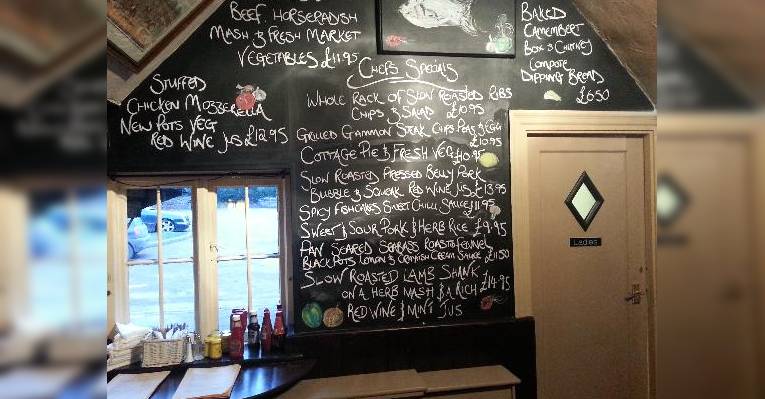 Beef Horseradish
Mash & Fresh Market
Vegetables £11.95
Stuffed
Chicken Mozzerella
New Pots Veg
Red Wine Jus £12.95
Chefs Specials
Whole Rack of Slow Roasted Ribs
Chips & Salad £10.95
Grilled Gammon Steak Chips Peas & Egg
£10.95
Cottage Pie & Fresh Veg £10.95
Slow Roasted Pressed Belly Pork
Bubble & Squeak Red Wine Jus £13.95
Spicy Fishcakes Sweet Chilli Sauce £11.95
Sweet & Sour Pork & Herb Rice £9.95
Pan Seared Seabass Roasted Fennel
Black Pots Lemon & Cornish Cream Sauce £11.50
Slow Roasted Lamb Shank
on a Herb Mash & a Rich £14.95
Red Wine & Mint Jus
Baked
Camembert
Box & Chutney
Compote
Dipping Bread
£6.50
Ladies